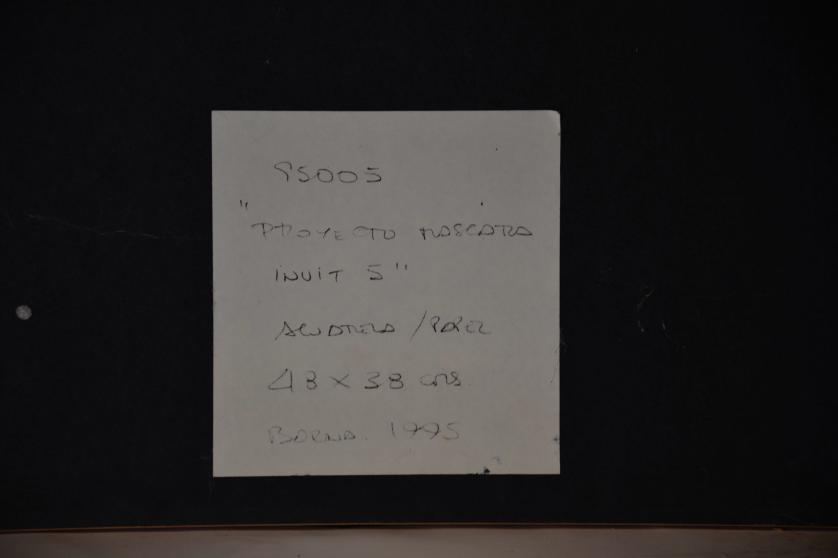 95005
"PROYECTO MASCARA
INUIT 5"
ACUARELA / PAPEL
48 x 38 cms.
1995